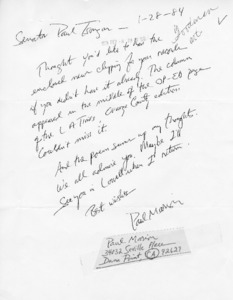 Senator Paul Tsongas 1-28-84
Thought you'd like to have the
enclosed news clipping for your records
if you didn't have it already. The column
appeared in the middle of the OP-ED page
of the L.A. Times, Orange County edition.
Couldn't miss it.
And the poem sums up my thoughts.
We all admire you. Maybe I'll
See you in Lowell when I return.
Best wishes
Paul Marion
Paul Marion
34932 Seville Place
Dana Point CA 92629